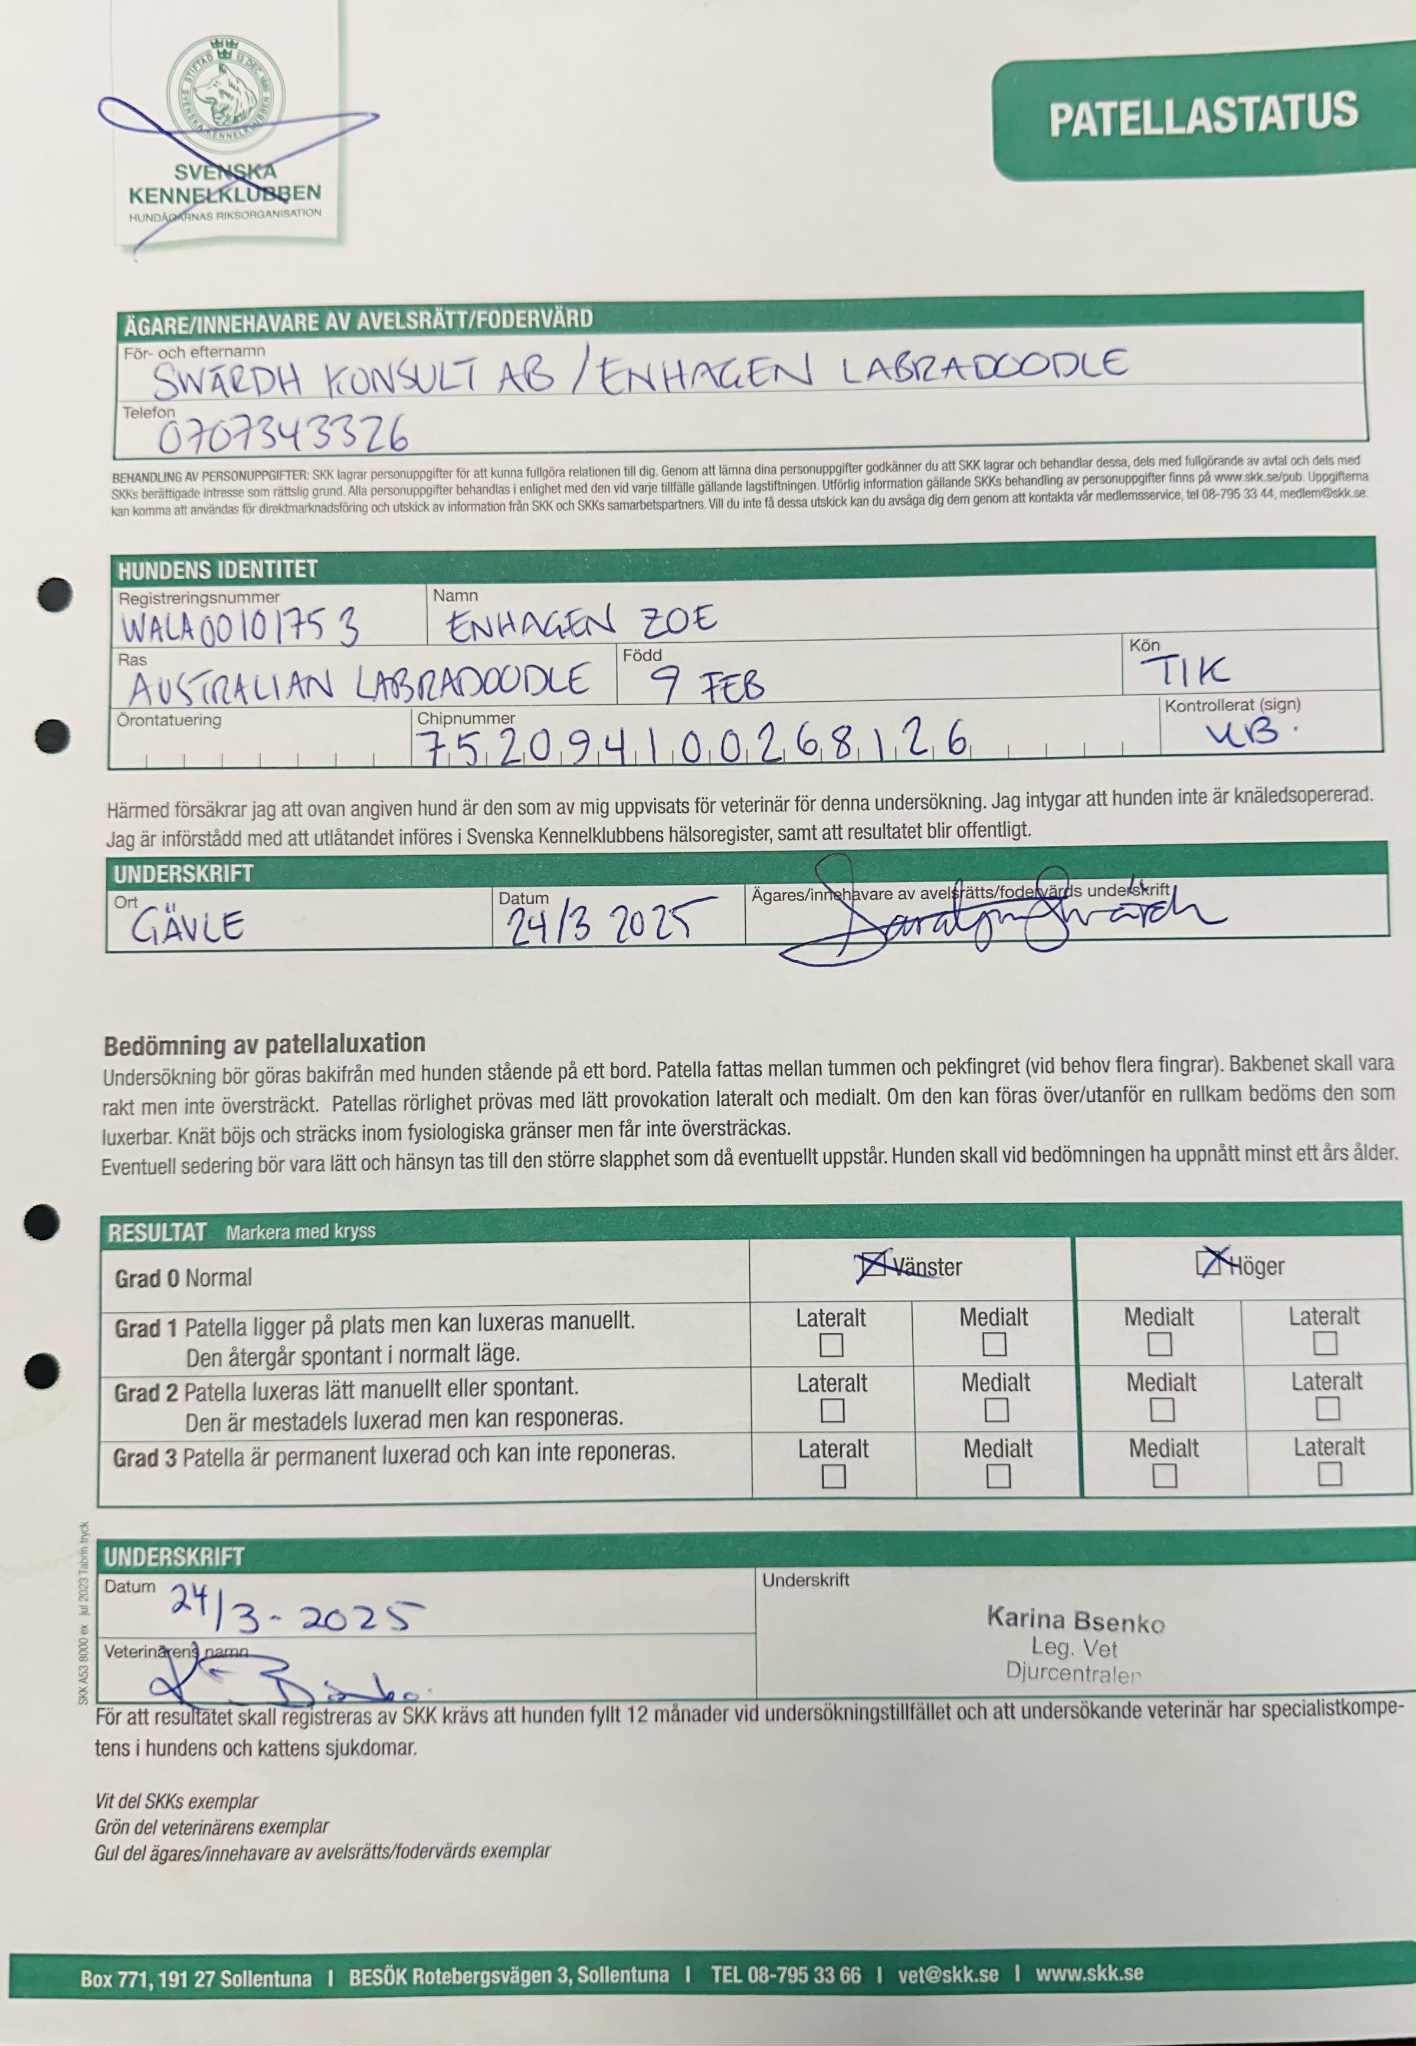 STIFTAD 13 DEC. 1889
SVENSKA KENNELKLUBBEN
SVENSKA
KENNELKLUBBEN
HUNDÄGARNAS RIKSORGANISATION
PATELLASTATUS
ÄGARE/INNEHAVARE AV AVELSRÄTT/FODERVÄRD
För- och efternamn
SWÄRDH KONSULT AB / ENHAGEN LABRADOODLE
Telefon
0707343326
BEHANDLING AV PERSONUPPGIFTER: SKK lagrar personuppgifter för att kunna fullgöra relationen till dig. Genom att lämna dina personuppgifter godkänner du att SKK lagrar och behandlar dessa, dels med fullgörande av avtal och dels med
SKKs berättigade intresse som rättslig grund. Alla personuppgifter behandlas i enlighet med den vid varje tillfälle gällande lagstiftningen. Utförlig information gällande SKKs behandling av personuppgifter finns på www.skk.se/pub. Uppgifterna
kan komma att användas för direktmarknadsföring och utskick av information från SKK och SKKs samarbetspartners. Vill du inte få dessa utskick kan du avsäga dig dem genom att kontakta vår medlemsservice, tel 08-795 33 44, medlem@skk.se.
HUNDENS IDENTITET
Registreringsnummer Namn
WALA00101753 ENHAGEN ZOE
Ras Född Kön
AUSTRALIAN LABRADOODLE 9 FEB TIK
Örontatuering Chipnummer Kontrollerat (sign)
752094100268126 KB.
Härmed försäkrar jag att ovan angiven hund är den som av mig uppvisats för veterinär för denna undersökning. Jag intygar att hunden inte är knäledsopererad.
Jag är införstådd med att utlåtandet införes i Svenska Kennelklubbens hälsoregister, samt att resultatet blir offentligt.
UNDERSKRIFT
Ort Datum Ägares/innehavare av avelsrätts/fodervärds underskrift
GÄVLE 24/3 2025
Bedömning av patellaluxation
Undersökning bör göras bakifrån med hunden stående på ett bord. Patella fattas mellan tummen och pekfingret (vid behov flera fingrar). Bakbenet skall vara
rakt men inte översträckt. Patellas rörlighet prövas med lätt provokation lateralt och medialt. Om den kan föras över/utanför en rullkam bedöms den som
luxerbar. Knät böjs och sträcks inom fysiologiska gränser men får inte översträckas.
Eventuell sedering bör vara lätt och hänsyn tas till den större slapphet som då eventuellt uppstår. Hunden skall vid bedömningen ha uppnått minst ett års ålder.
RESULTAT Markera med kryss
Grad 0 Normal Vänster Höger
Grad 1 Patella ligger på plats men kan luxeras manuellt. Lateralt Medialt Medialt Lateralt
Den återgår spontant i normalt läge.
Grad 2 Patella luxeras lätt manuellt eller spontant. Lateralt Medialt Medialt Lateralt
Den är mestadels luxerad men kan responeras.
Grad 3 Patella är permanent luxerad och kan inte reponeras. Lateralt Medialt Medialt Lateralt
UNDERSKRIFT
Datum 24/3-2025 Underskrift
Karina Bsenko
Leg. Vet
Djurcentralen
Veterinärens namn
SKK A53 8000 ex jul 2023 Tabrin tryck
För att resultatet skall registreras av SKK krävs att hunden fyllt 12 månader vid undersökningstillfället och att undersökande veterinär har specialistkompe-
tens i hundens och kattens sjukdomar.
Vit del SKKs exemplar
Grön del veterinärens exemplar
Gul del ägares/innehavare av avelsrätts/fodervärds exemplar
Box 771, 191 27 Sollentuna I BESÖK Rotebergsvägen 3, Sollentuna I TEL 08-795 33 66 I vet@skk.se I www.skk.se